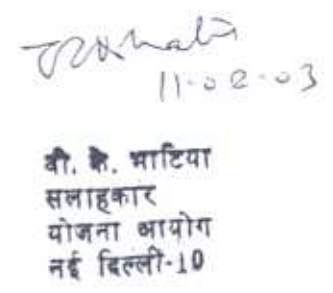 11-02-03
वी. के. भाटिया
सलाहकार
योजना आयोग
नई दिल्ली-10